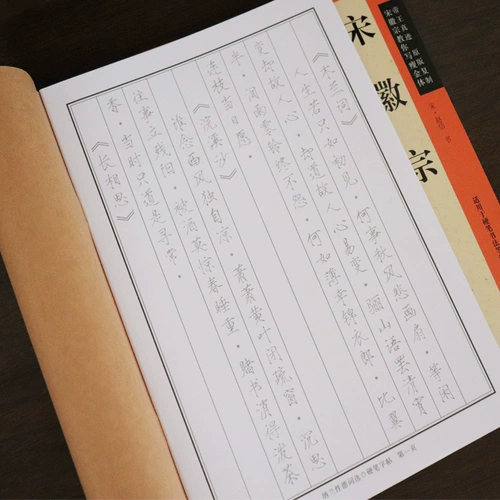 帝王真迹 原版复制
宋徽宗教你写瘦金体
宋徽宗
宋·赵佶 书
适用于硬笔书法
《木兰词》
人生若只如初见。何事秋风悲画扇。等闲
变却故人心。却道故人心易变。骊山语罢清宵
半。泪雨零铃终不怨。何如薄幸锦衣郎。比翼
连枝当日愿。
《浣溪沙》
谁念西风独自凉。萧萧黄叶闭疏窗。沉思
往事立残阳。被酒莫惊春睡重。赌书消得泼茶
香。当时只道是寻常。
《长相思》
纳兰性德词选◇硬笔字帖 第一页